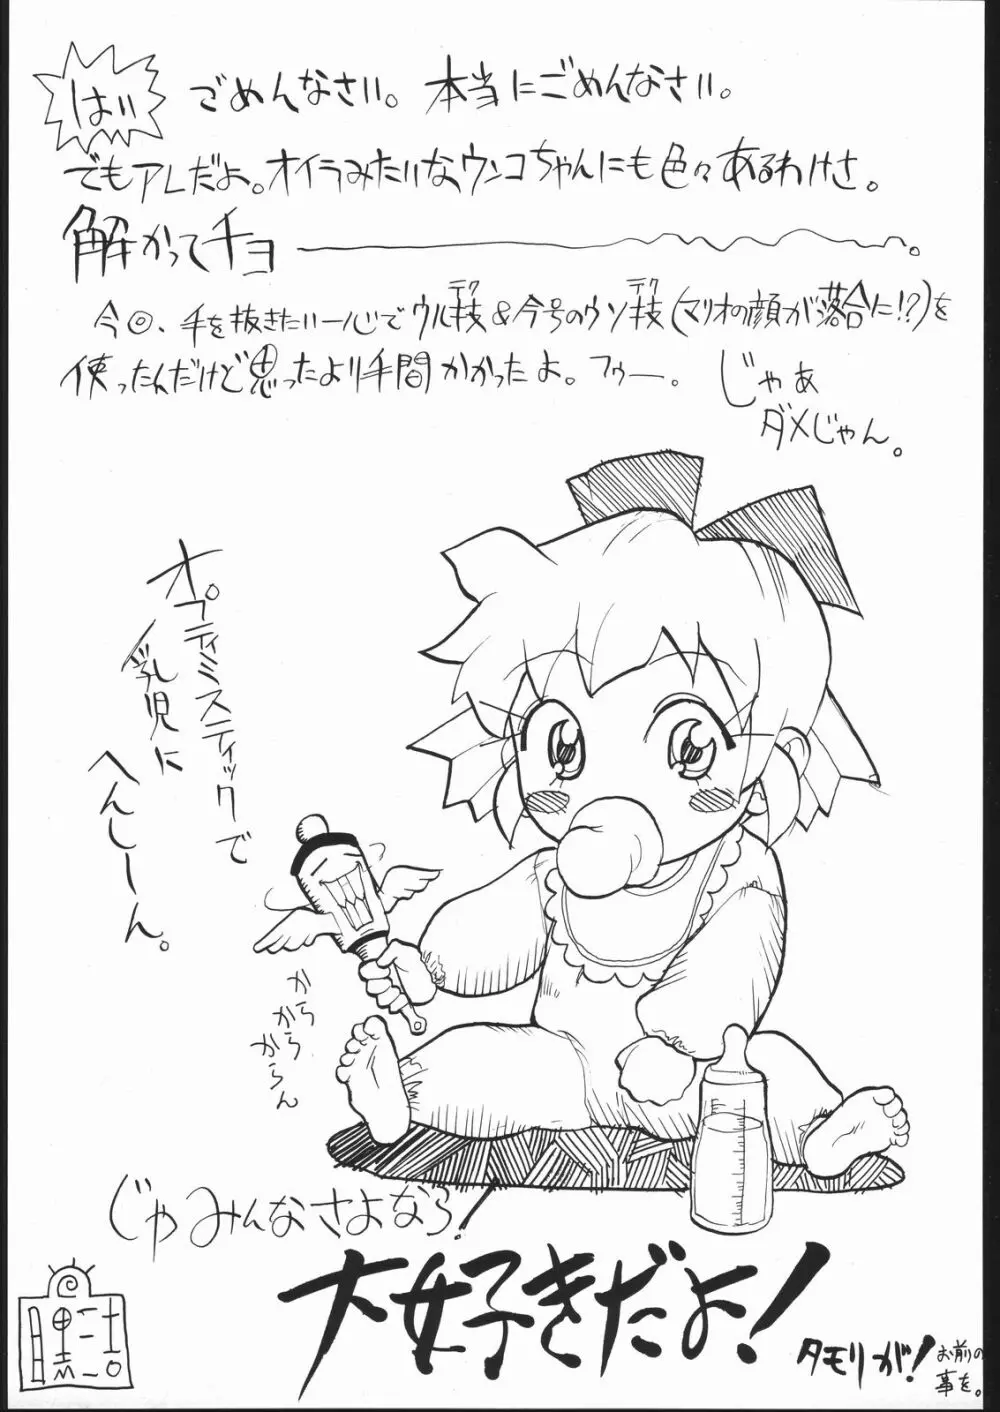 はい ごめんなさい。本当にごめんなさい。
でもアレだよ。オイラみたいなウンコちゃんにも色々あるわけさ。
解かってチョ――――。
今回、手を抜きたい一心でウル技&今号のウソ技(マリオの顔が落合に!?)を
テク
テク
使ったんだけど思ったより手間かかったよ。フゥー。
じゃあ
ダメじゃん。
オプティミスティックで
乳児に
へんしーん。
からから
からん
じゃみんなさよなら!
大好きだよ!
タモリが!
お前の
事を。